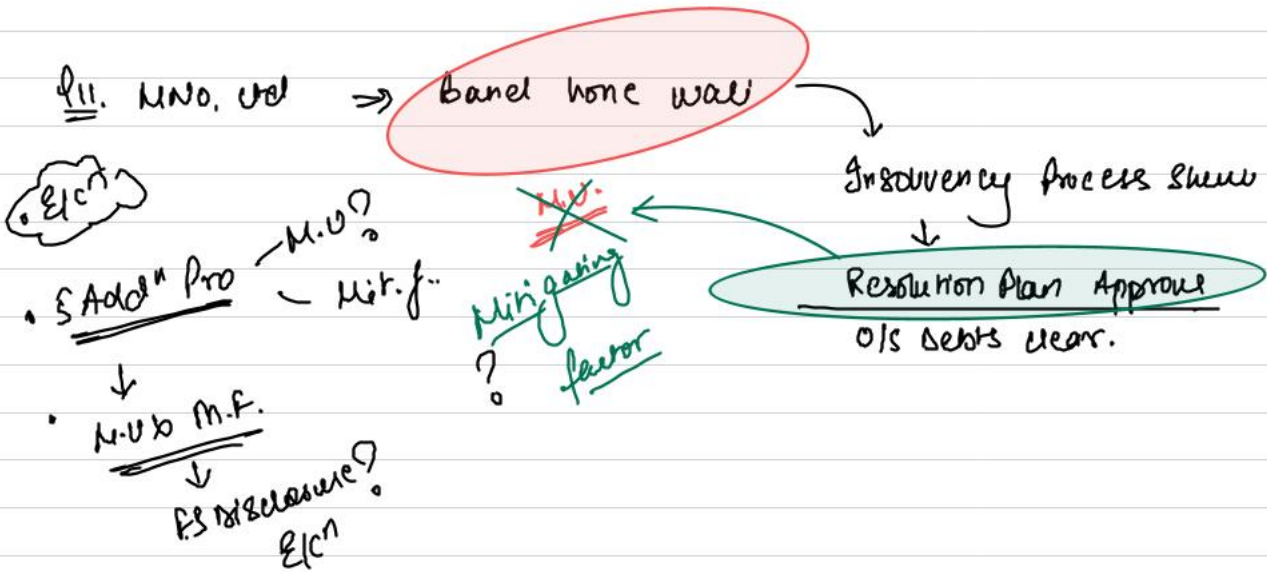 Q11. MNO. Ltd ⇒ Band hone wali
Insolvency Process Shuru
↓
Resolution Plan Approve
O/S Debts clear.
M.U.
Mitigating
?
factor
E/Cⁿ
• § Addⁿ Pro
M.U?
Mit. f..
↓
• M.U & M.F.
↓
F.S Disclosure?
E/Cⁿ